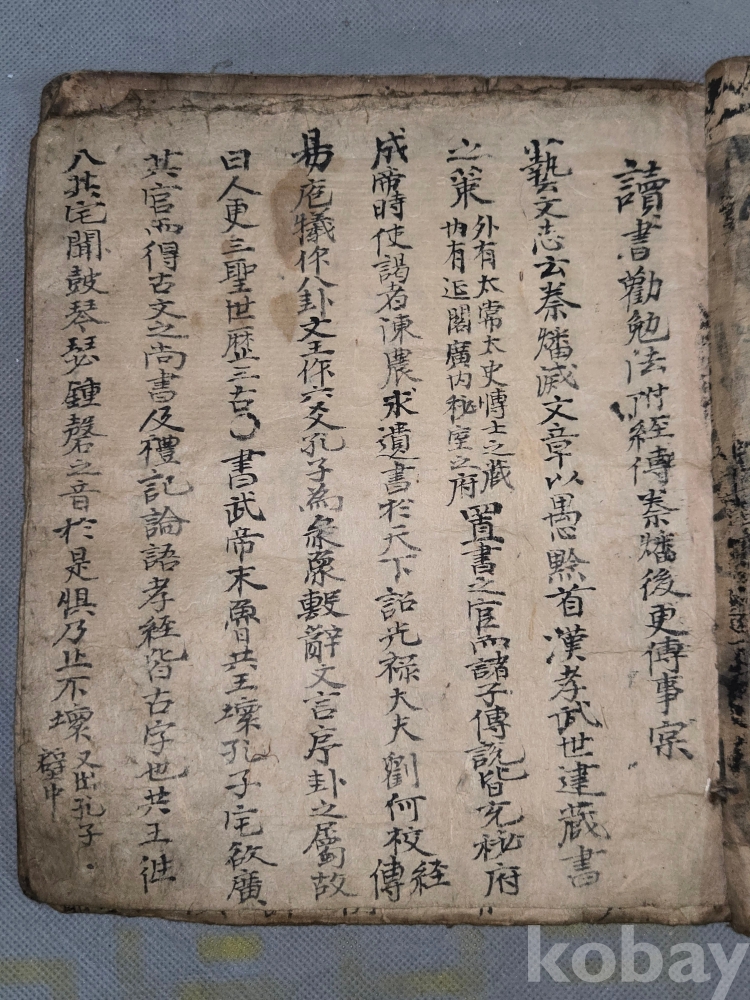 讀書勸勉法附經傳秦燔後更傳事案
藝文志云秦燔滅文章以愚黔首漢孝武世建藏書
之策 外有太常太史博士之藏 內有延閣廣內秘室之府 置書之官而諸子傳說皆充秘府
成帝時使謁者陳農求遺書於天下詔光祿大夫劉向校經傳
易庖犧作八卦文王作六爻孔子為彖象繫辭文言序卦之屬故
曰人更三聖世歷三古 書武帝末魯共王壞孔子宅欲廣
其官而得古文之尚書及禮記論語孝經皆古字也共王往
入其宅聞鼓琴瑟鍾磬之音於是懼乃止不壞 又出孔子 壁中
kobay